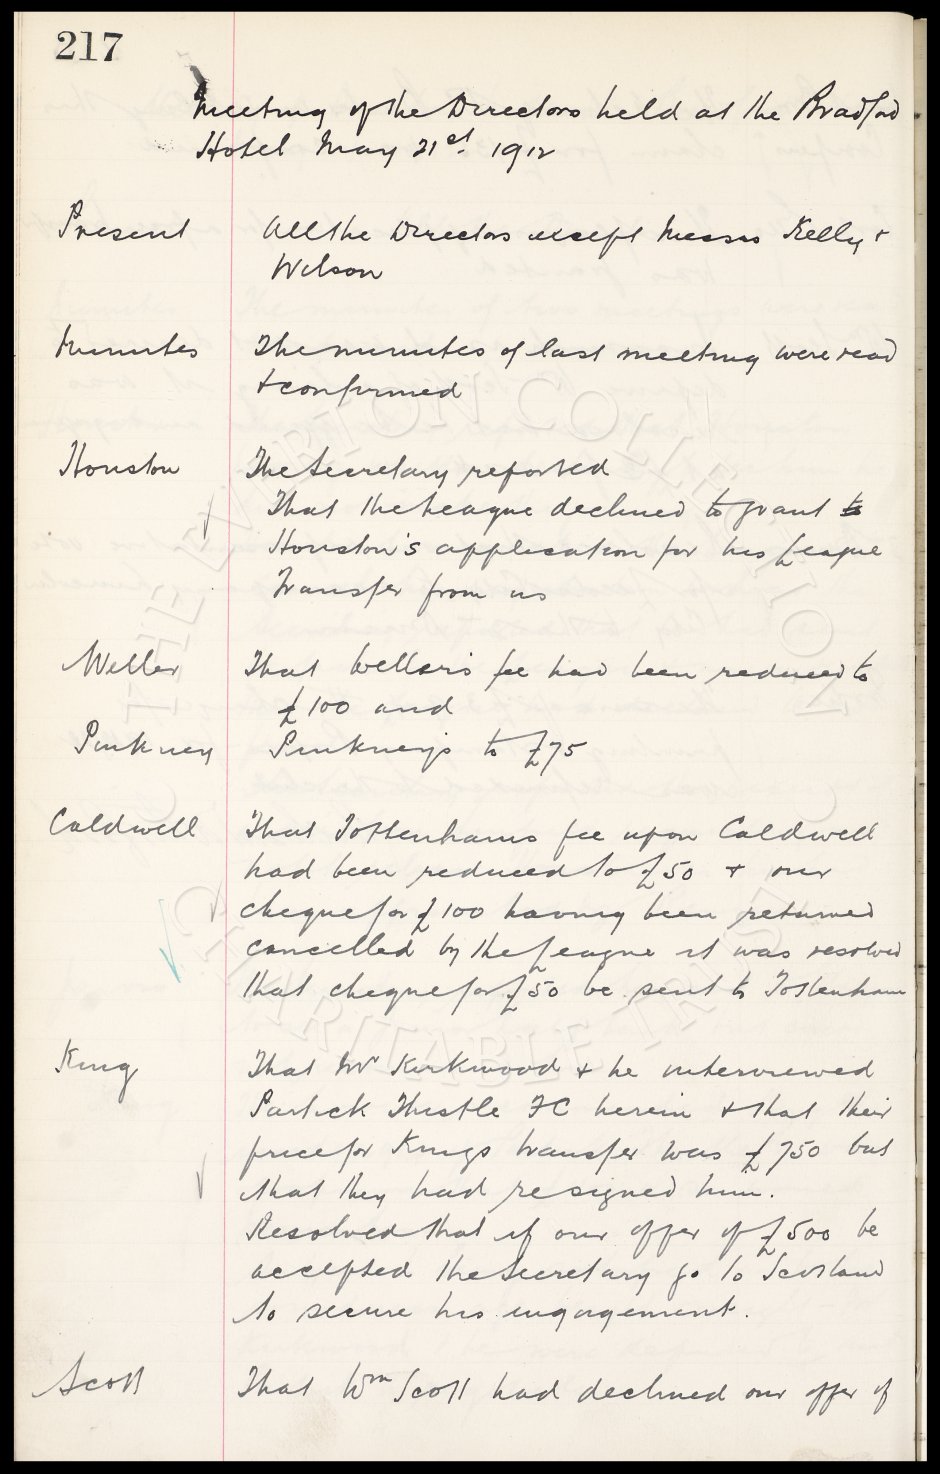 217
Meeting of the Directors held at the Bradford
Hotel May 21st. 1912
Present All the Directors except Messrs Kelly +
Wilson
Minutes The minutes of last meeting were read
+ confirmed
Houston The Secretary reported
That the League declined to grant to
Houston's application for his League
Transfer from us
Weller That Weller's fee had been reduced to
£100 and
Pinkney Pinkney's to £75
Caldwell That Tottenhams fee upon Caldwell
had been reduced to £50 + our
cheque for £100 having been returned
cancelled by the League it was resolved
that cheque for £50 be sent to Tottenham
King That Mr Kirkwood + he interviewed
Partick Thistle FC herein + that their
price for Kings transfer was £750 but
that they had resigned him.
Resolved that if our offer of £500 be
accepted the Secretary go to Scotland
to secure his engagement.
Scott That Wm Scott had declined our offer of
THE EVERTON COLLECTION
CHARITABLE TRUST